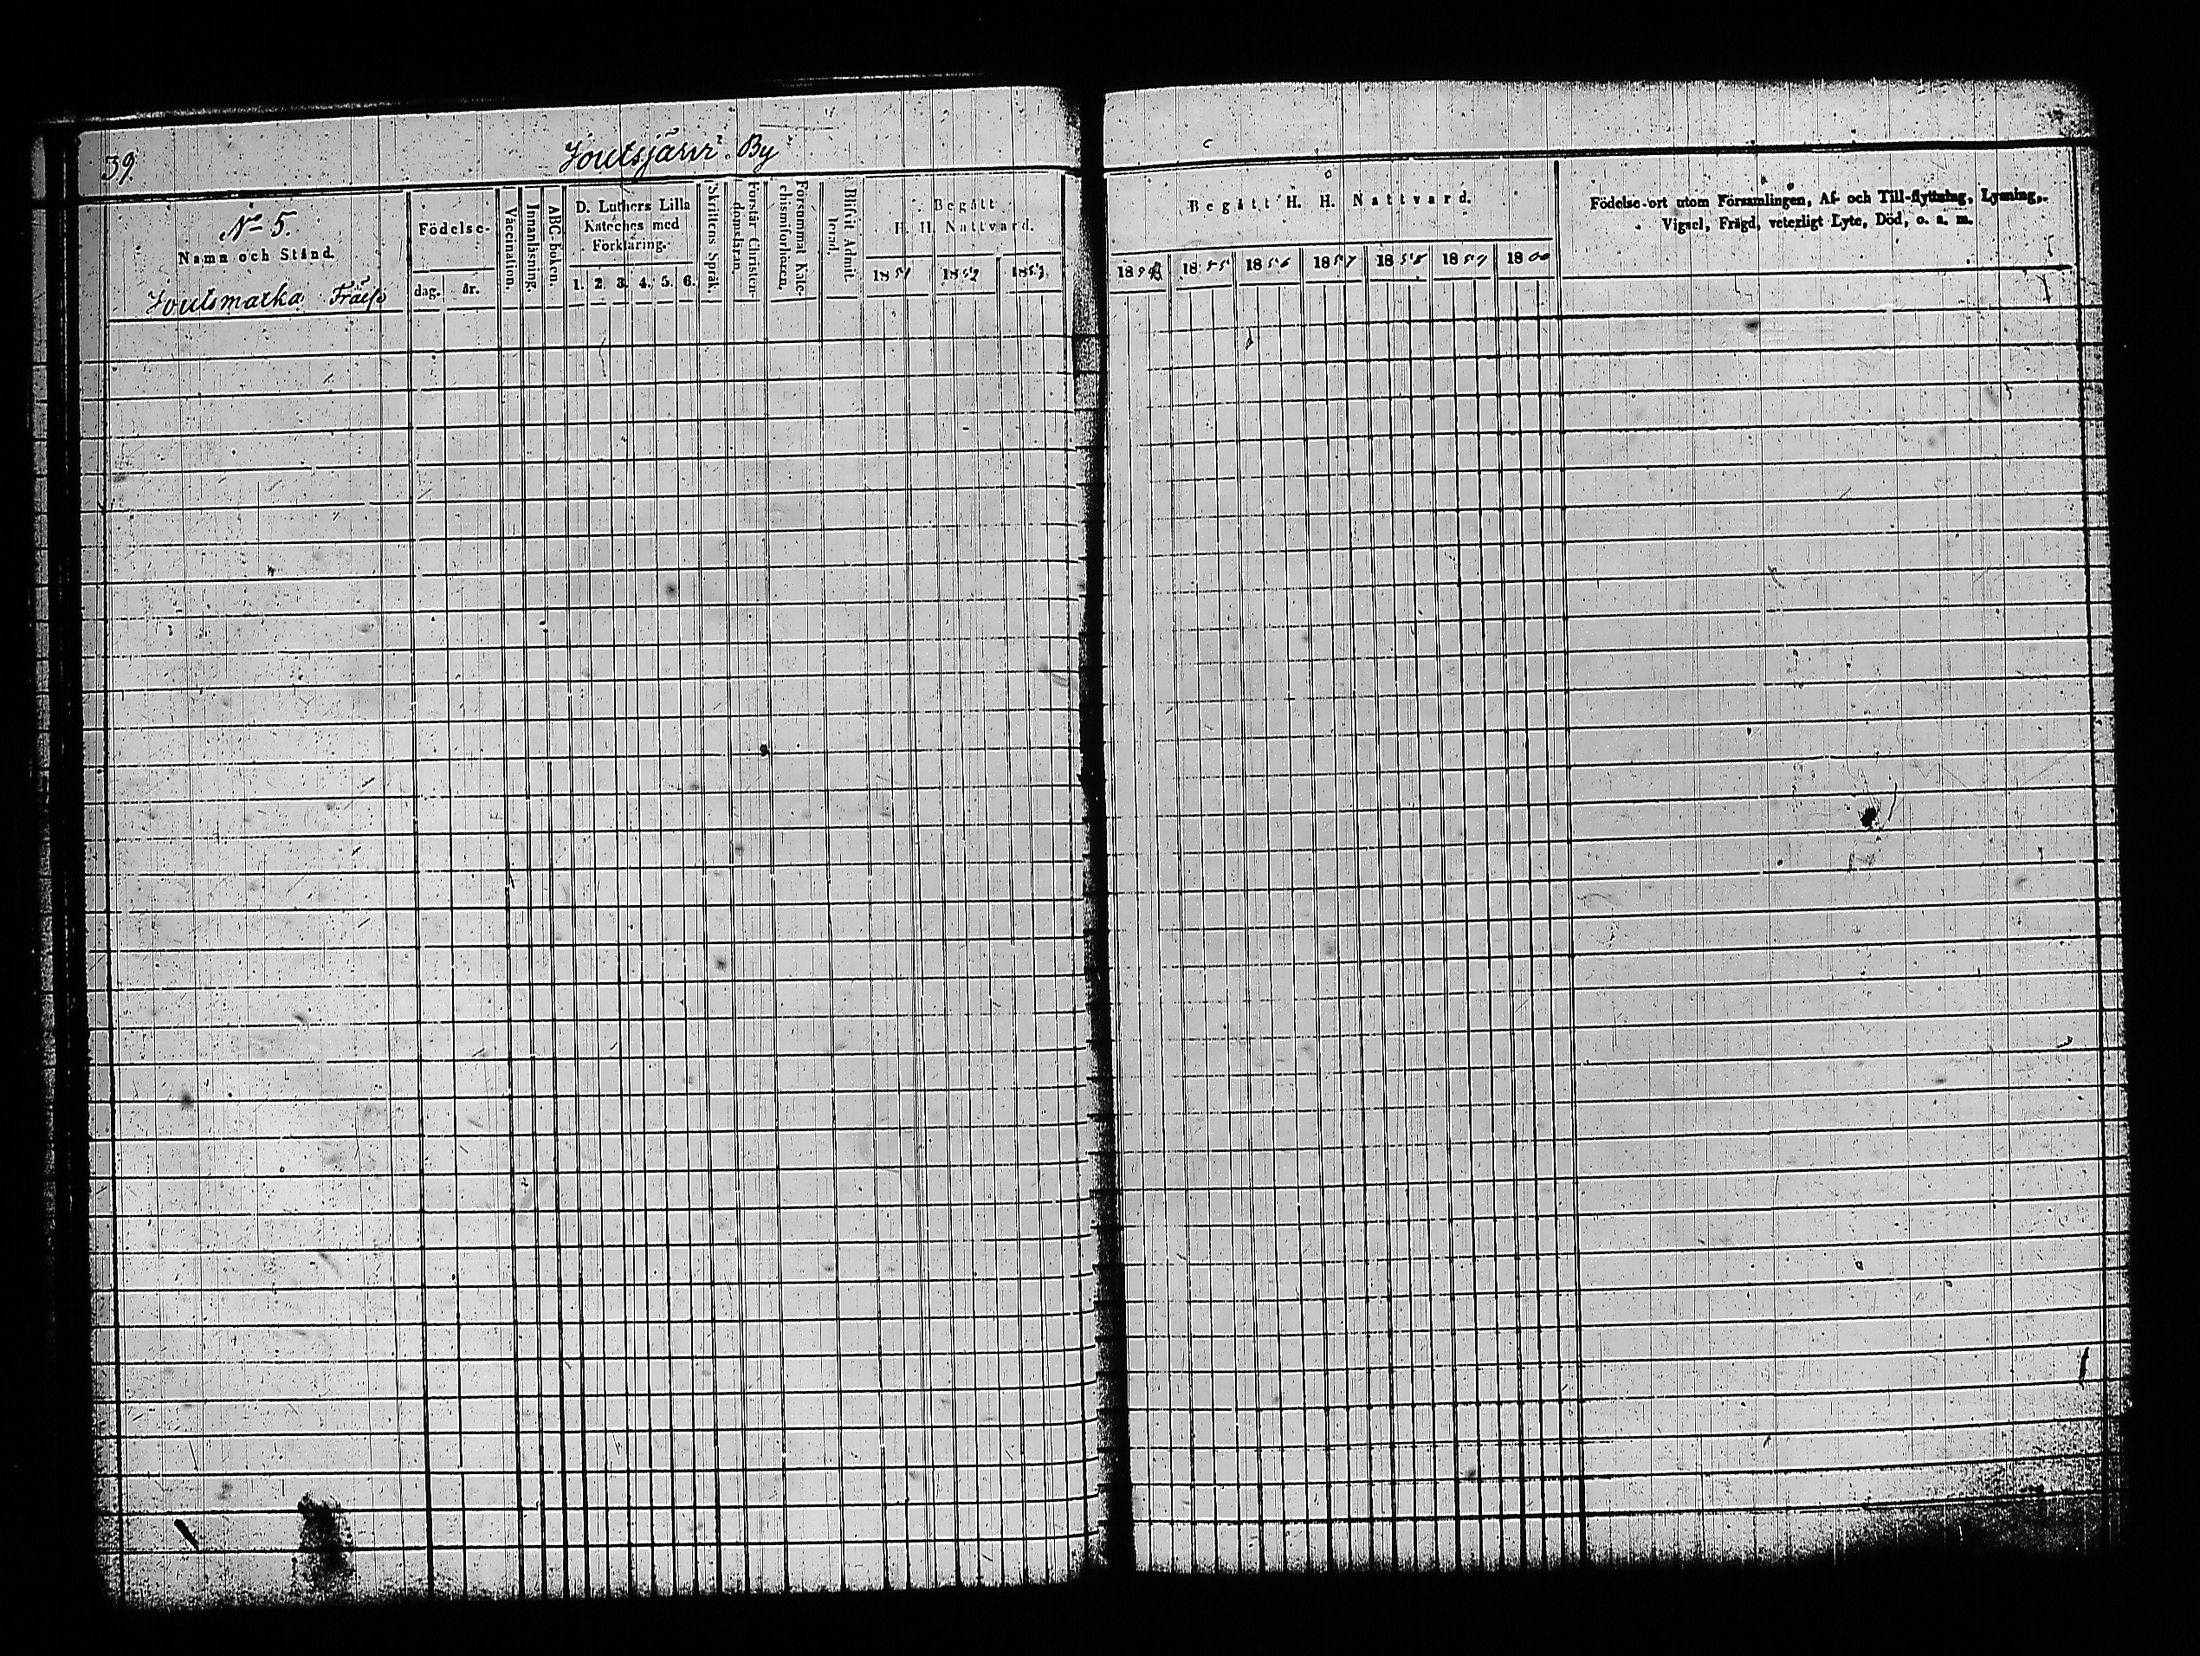 39.
Joutsjärvi By
No 5.
Namn och Stånd.
Joutsmaka Fräls
Födelse-
dag. år.
Vaccination.
Innanläsning.
ABC-boken.
D. Luthers Lilla
Kateches med
Förklaring.
1. 2. 3. 4. 5. 6.
Skriftens Språk.
Förstår Christen-
domsläran.
Försummat Kate-
chismförhören.
Blifvit Admit-
terad.
Begått
H. H. Nattvard.
1851 1852 1853
Begått H. H. Nattvard.
1854 1855 1856 1857 1858 1859 1860
Födelse-ort utom Församlingen, Af- och Till-flyttning, Lysning,
Vigsel, Frägd, veterligt Lyte, Död, o. s. m.